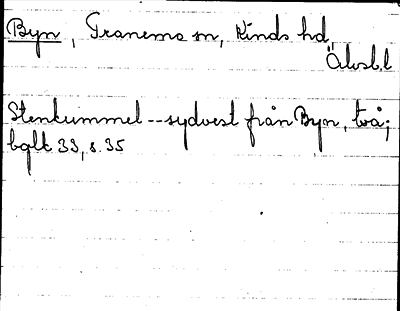 Byn, Tranemo sn, Kinds hd
Älvsb.l
Stenkummel -- sydvest från Byn, två;
bglk 33, s. 35